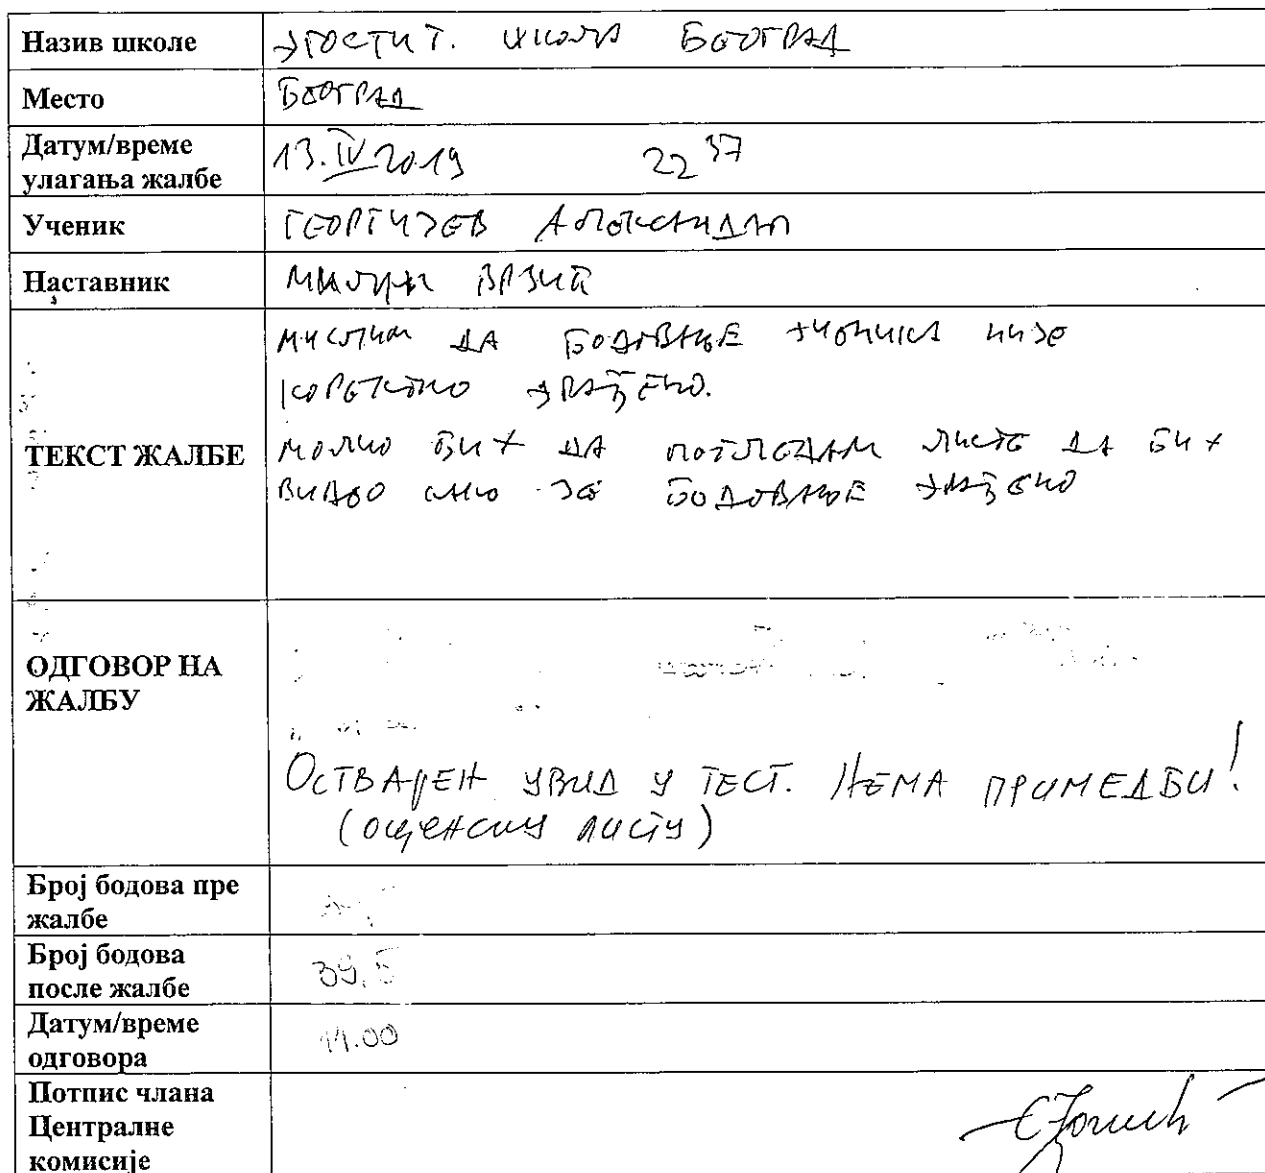 Назив школе УГОСТИТ. ШКОЛА БЕОГРАД
Место БЕОГРАД
Датум/време
улагања жалбе 13. IV 2019 22 37
Ученик ГЕОРГИЈЕВ АЛЕКСАНДАР
Наставник МИЛУН
ТЕКСТ ЖАЛБЕ
МИСЛИМ ДА БОДОВАЊЕ УЧЕНИКА НИЈЕ
КОРЕКТНО УРАЂЕНО.
МОЛИО БИХ ДА ПОГЛЕДАМ ЛИСТЕ ДА БИХ
ВИДЕО ЈЕ БОДОВАЊЕ УРАЂЕНО
ОДГОВОР НА
ЖАЛБУ
ОСТВАРЕН УВИД У ТЕСТ. НЕМА ПРИМЕДБИ!
(оцјенски листу)
Број бодова пре
жалбе
Број бодова
после жалбе 39,5
Датум/време
одговора 11.00
Потпис члана
Централне
комисије